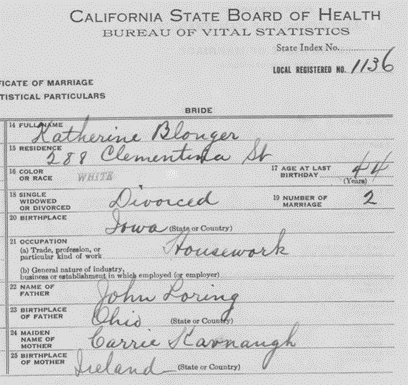 CALIFORNIA STATE BOARD OF HEALTH
BUREAU OF VITAL STATISTICS
State Index No.
LOCAL REGISTERED NO. 1136
FICATE OF MARRIAGE
TISTICAL PARTICULARS
BRIDE
14 FULL NAME Katherine Blonger
15 RESIDENCE 288 Clementina St
16 COLOR OR RACE WHITE 17 AGE AT LAST BIRTHDAY 44 (Years)
18 SINGLE WIDOWED OR DIVORCED Divorced 19 NUMBER OF MARRIAGE 2
20 BIRTHPLACE Iowa (State or Country)
21 OCCUPATION
(a) Trade, profession, or particular kind of work Housework
(b) General nature of industry,
business or establishment in which employed (or employer)
22 NAME OF FATHER John Loring
23 BIRTHPLACE OF FATHER Ohio (State or Country)
24 MAIDEN NAME OF MOTHER Carrie Kavnaugh
25 BIRTHPLACE OF MOTHER Ireland (State or Country)